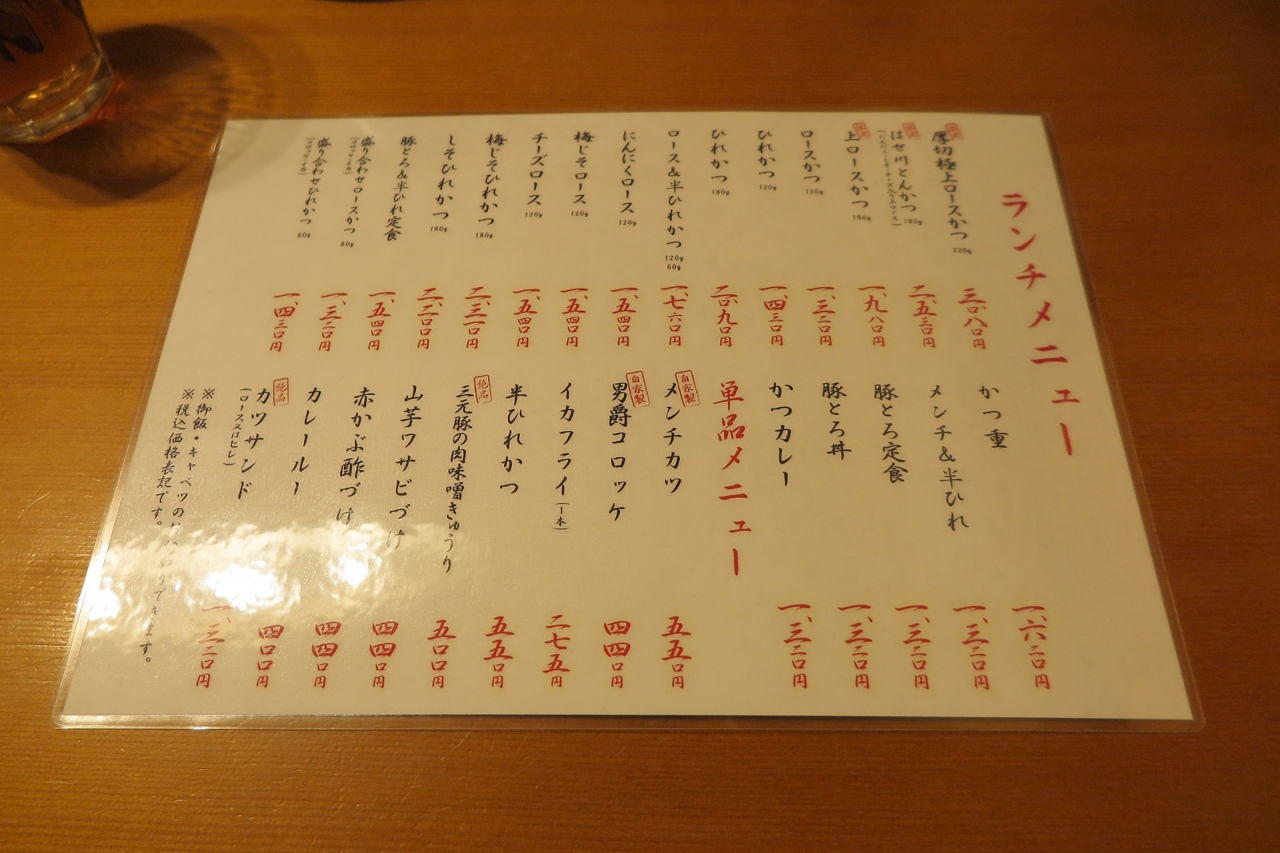 ランチメニュー
厚切極上ロースかつ 220g 三、〇八〇円
はせ川とんかつ 180g 二、五三〇円
上ロースかつ 180g 一、九八〇円
ロースかつ 120g 一、三二〇円
ひれかつ 120g 一、四三〇円
ひれかつ 180g 二、〇九〇円
ロース&半ひれかつ 120g 60g 一、七六〇円
にんにくロース 120g 一、五四〇円
梅じそロース 120g 一、五四〇円
チーズロース 120g 一、五四〇円
梅じそひれかつ 180g 二、三一〇円
しそひれかつ 180g 二、二〇〇円
豚とろ&半ひれ定食 一、五四〇円
盛り合わせロースかつ 80g 一、三二〇円
(コロッケ・イカ)
盛り合わせひれかつ 60g 一、四三〇円
(コロッケ・イカ)
かつ重 一、六二〇円
メンチ&半ひれ 一、三二〇円
豚とろ定食 一、三二〇円
豚とろ丼 一、三二〇円
かつカレー 一、三二〇円
単品メニュー
自家製 メンチカツ 五五〇円
自家製 男爵コロッケ 四四〇円
イカフライ(一本) 二七五円
半ひれかつ 五五〇円
絶品 三元豚の肉味噌きゅうり 五〇〇円
山芋ワサビづけ 四四〇円
赤かぶ酢づけ 四四〇円
カレールー 四〇〇円
絶品 カツサンド 一、三二〇円
(ロース又はヒレ)
※御飯・キャベツのおかわりできます。
※税込価格表記です。